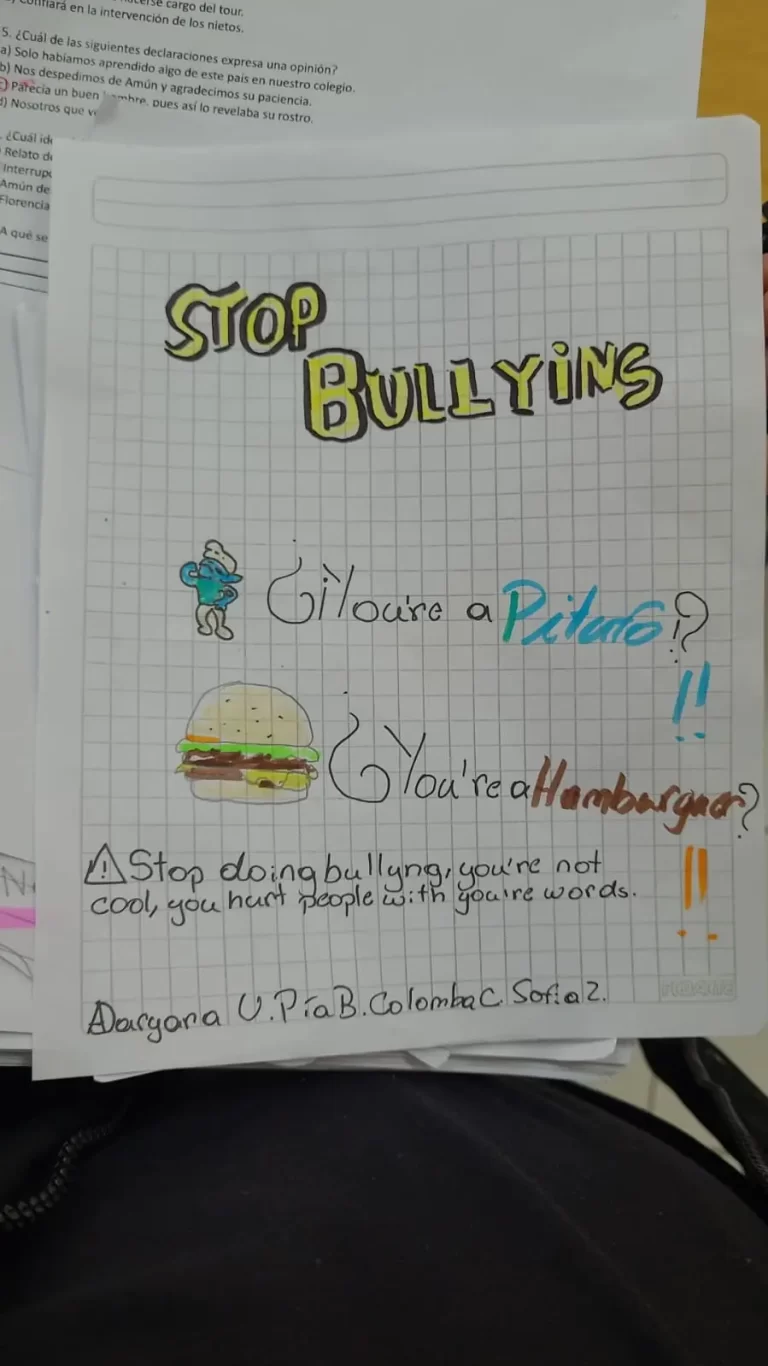 cerse cargo del tour.
Confiará en la intervención de los nietos.
5. ¿Cuál de las siguientes declaraciones expresa una opinión?
a) Solo habíamos aprendido algo de este país en nuestro colegio.
b) Nos despedimos de Amún y agradecimos su paciencia.
c) Parecía un buen hombre, pues así lo revelaba su rostro.
d) Nosotros que
¿Cuál
Relato
Amún de
Florencia
A qué se
STOP
BULLYiNG
¿¡You're a Pitufo!?
!!
¿You're a Hamburguer?
!!
⚠Stop doing bullyng, you're not
cool, you hurt people with you're words.
Daryana U. Pía B. Colomba C. Sofia Z.